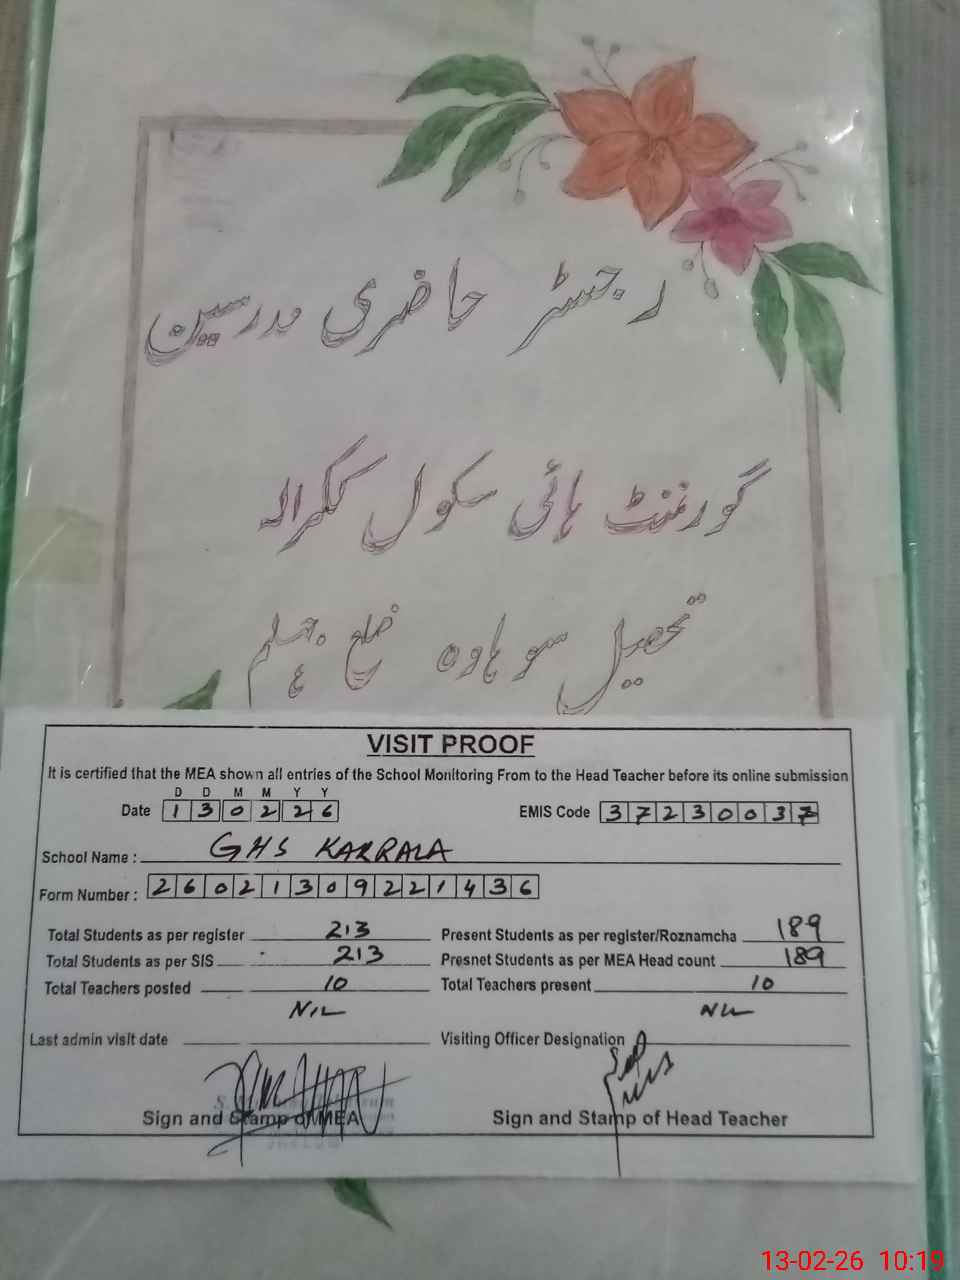 رجسٹر حاضری مدرسین
گورنمنٹ ہائی سکول ککرالہ
تحصیل سوہاوہ ضلع جہلم
VISIT PROOF
It is certified that the MEA shown all entries of the School Monitoring From to the Head Teacher before its online submission
D D M M Y Y
Date 1 3 0 2 2 6 EMIS Code 3 7 2 3 0 0 3 7
School Name : GHS KARRALA
Form Number : 2 6 0 2 1 3 0 9 2 2 1 4 3 6
Total Students as per register 213 Present Students as per register/Roznamcha 189
Total Students as per SIS 213 Presnet Students as per MEA Head count 189
Total Teachers posted 10 Total Teachers present 10
Last admin visit date NIL Visiting Officer Designation NIL
Sign and Stamp of MEA Sign and Stamp of Head Teacher
13-02-26 10:19